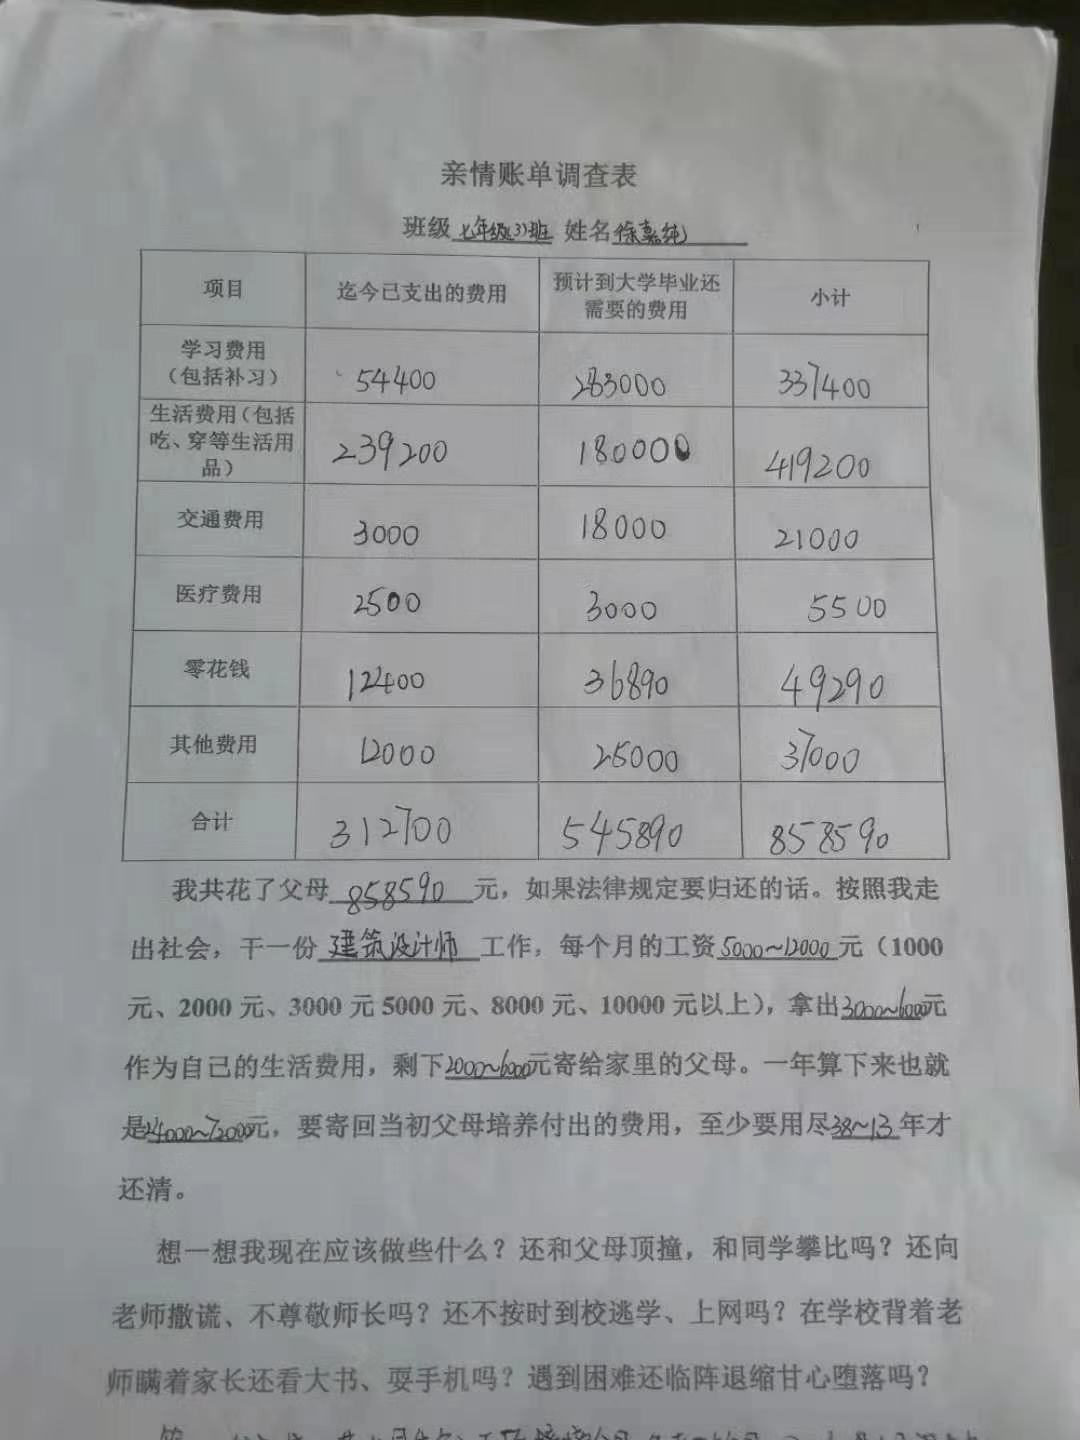 亲情账单调查表
班级 七年级(3)班 姓名 徐嘉纯
项目 迄今已支出的费用 预计到大学毕业还需要的费用 小计
学习费用（包括补习） 54400 283000 337400
生活费用（包括吃、穿等生活用品） 239200 180000 419200
交通费用 3000 18000 21000
医疗费用 2500 3000 5500
零花钱 12400 36890 49290
其他费用 12000 25000 37000
合计 312700 545890 858590
我共花了父母 858590 元，如果法律规定要归还的话。按照我走
出社会，干一份 建筑设计师 工作，每个月的工资 5000~12000 元（1000
元、2000 元、3000 元 5000 元、8000 元、10000 元以上），拿出 3000~6000 元
作为自己的生活费用，剩下 2000~6000 元寄给家里的父母。一年算下来也就
是 24000~72000 元，要寄回当初父母培养付出的费用，至少要用尽 38~13 年才
还清。
想一想我现在应该做些什么？还和父母顶撞，和同学攀比吗？还向
老师撒谎、不尊敬师长吗？还不按时到校逃学、上网吗？在学校背着老
师瞒着家长还看大书、耍手机吗？遇到困难还临阵退缩甘心堕落吗？